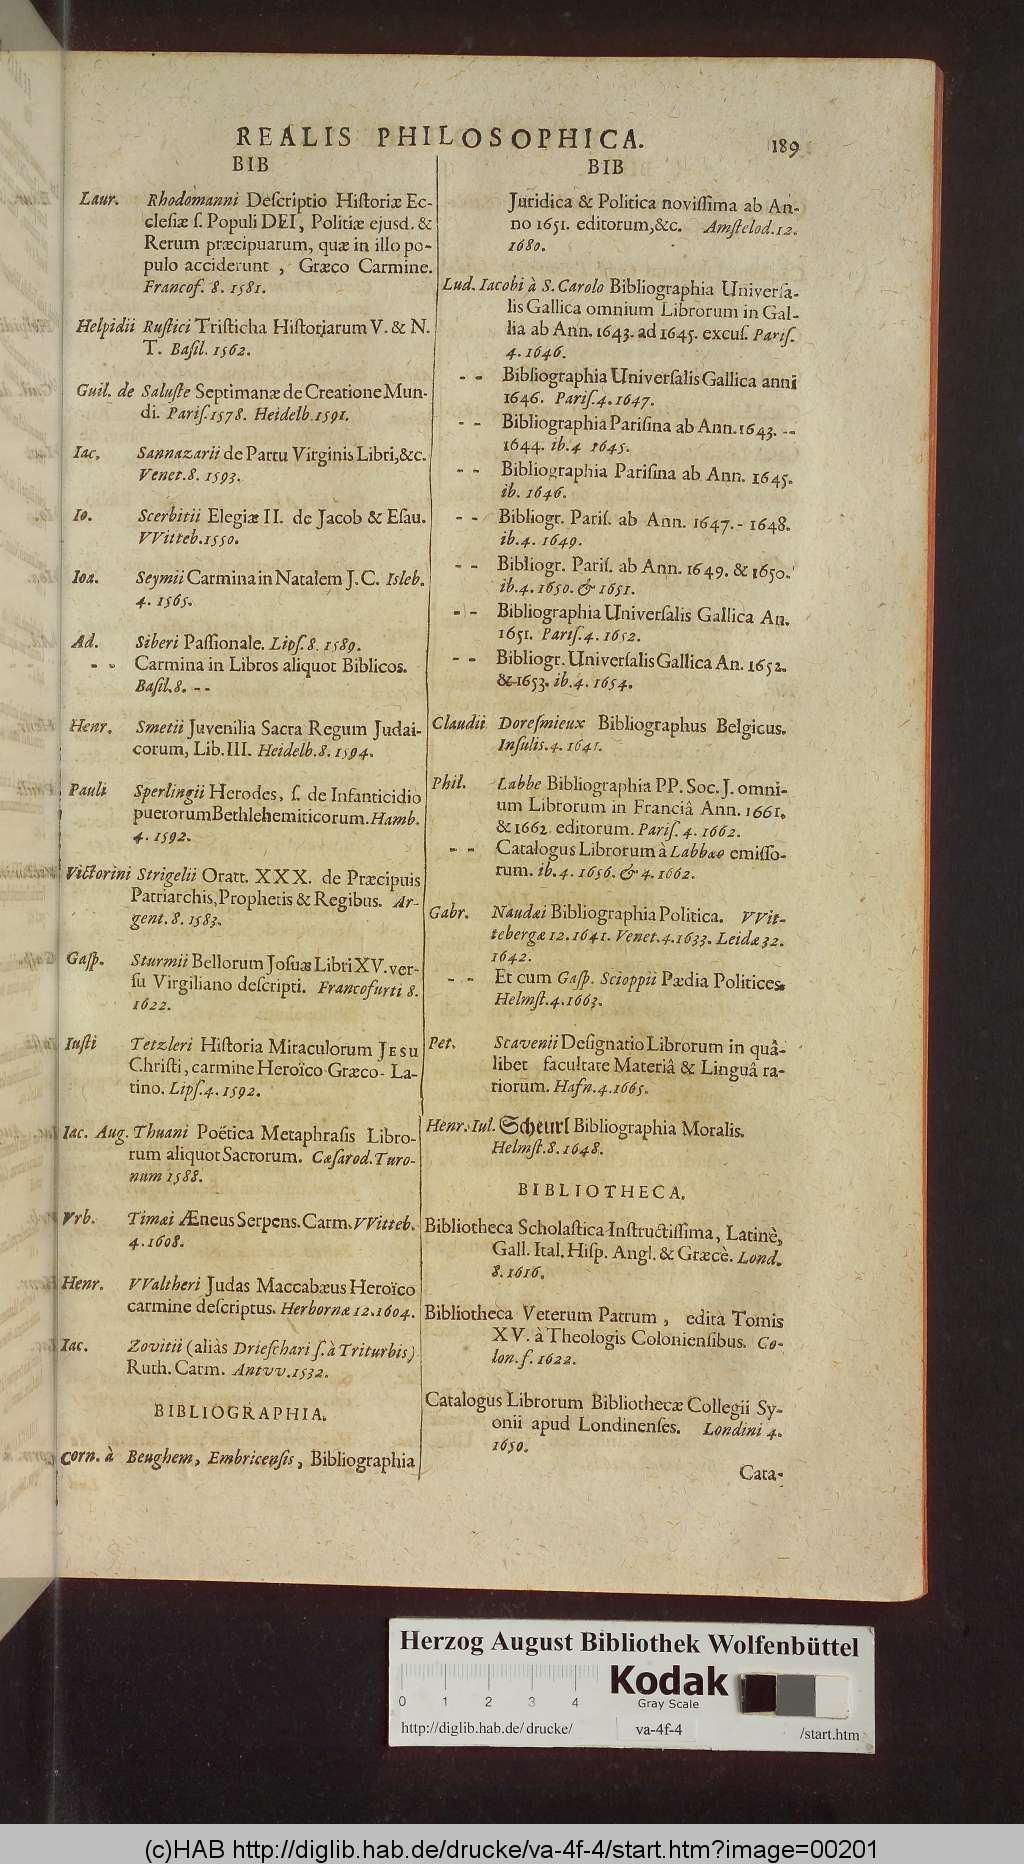 REALIS PHILOSOPHICA. 189
BIB
Laur. Rhodomanni Deſcriptio Hiſtoriæ Ec-
cleſiæ ſ. Populi DEI, Politiæ ejusd. &
Rerum præcipuarum, quæ in illo po-
pulo acciderunt, Græco Carmine.
Francof. 8. 1581.
Helpidii Ruſtici Triſticha Hiſtoriarum V. & N.
T. Baſil. 1562.
Guil. de Saluſte Septimanæ de Creatione Mun-
di. Pariſ. 1578. Heidelb. 1591.
Iac. Sannazarii de Partu Virginis Libri, &c.
Venet. 8. 1593.
Io. Scerbitii Elegiæ II. de Jacob & Eſau.
VVitteb. 1550.
Ioa. Seymii Carmina in Natalem J. C. Isleb.
4. 1565.
Ad. Siberi Paſſionale. Lipſ. 8. 1589.
- - Carmina in Libros aliquot Biblicos.
Baſil. 8. - -
Henr. Smetii Juvenilia Sacra Regum Judai-
corum, Lib. III. Heidelb. 8. 1594.
Pauli Sperlingii Herodes, ſ. de Infanticidio
puerorum Bethlehemiticorum. Hamb.
4. 1592.
Victorini Strigelii Oratt. XXX. de Præcipuis
Patriarchis, Prophetis & Regibus. Ar-
gent. 8. 1583.
Gaſp. Sturmii Bellorum Joſuæ Libri XV. ver-
ſu Virgiliano deſcripti. Francofurti 8.
1622.
Iuſti Tetzleri Hiſtoria Miraculorum JESU
Chriſti, carmine Heroïco Græco-La-
tino. Lipſ. 4. 1592.
Iac. Aug. Thuani Poëtica Metaphraſis Libro-
rum aliquot Sacrorum. Cæſarod. Turo-
num 1588.
Vrb. Timæi Æneus Serpens. Carm. VVitteb.
4. 1608.
Henr. VValtheri Judas Maccabæus Heroïco
carmine deſcriptus. Herbornæ 12. 1604.
Iac. Zovitii (aliàs Drieſchari ſ. à Triturbis)
Ruth. Carm. Antvv. 1532.
BIBLIOGRAPHIA.
Corn. à Beughem, Embricenſis, Bibliographia
BIB
Juridica & Politica noviſſima ab An-
no 1651. editorum, &c. Amſtelod. 12.
1680.
Lud. Iacobi à S. Carolo Bibliographia Univerſa-
lis Gallica omnium Librorum in Gal-
lia ab Ann. 1643. ad 1645. excuſ. Pariſ.
4. 1646.
- - Bibliographia Univerſalis Gallica anni
1646. Pariſ. 4. 1647.
- - Bibliographia Pariſina ab Ann. 1643. --
1644. ib. 4 1645.
- - Bibliographia Pariſina ab Ann. 1645.
ib. 1646.
- - Bibliogr. Pariſ. ab Ann. 1647. - 1648.
ib. 4. 1649.
- - Bibliogr. Pariſ. ab Ann. 1649. & 1650.
ib. 4. 1650. & 1651.
- - Bibliographia Univerſalis Gallica An.
1651. Pariſ. 4. 1652.
- - Bibliogr. Univerſalis Gallica An. 1652.
& 1653. ib. 4. 1654.
Claudii Doreſmieux Bibliographus Belgicus.
Inſulis. 4. 1641.
Phil. Labbe Bibliographia PP. Soc. J. omni-
um Librorum in Franciâ Ann. 1661.
& 1662 editorum. Pariſ. 4. 1662.
- - Catalogus Librorum à Labbæo emiſſo-
rum. ib. 4. 1656. & 4. 1662.
Gabr. Naudæi Bibliographia Politica. VVit-
tebergæ 12. 1641. Venet. 4. 1633. Leidæ 32.
1642.
- - Et cum Gaſp. Scioppii Pædia Politices.
Helmſt. 4. 1663.
Pet. Scavenii Deſignatio Librorum in quâ-
libet facultate Materiâ & Linguâ ra-
riorum. Hafn. 4. 1665.
Henr. Iul. Scheurl Bibliographia Moralis.
Helmſt. 8. 1648.
BIBLIOTHECA.
Bibliotheca Scholaſtica Inſtructiſſima, Latinè,
Gall. Ital. Hiſp. Angl. & Græcè. Lond.
8. 1616.
Bibliotheca Veterum Patrum, edita Tomis
XV. à Theologis Colonienſibus. Co-
lon. f. 1622.
Catalogus Librorum Bibliothecæ Collegii Sy-
onii apud Londinenſes. Londini 4.
1650.
Cata-
Herzog August Bibliothek Wolfenbüttel
0 1 2 3 4
Kodak
Gray Scale
http://diglib.hab.de/drucke/ va-4f-4 /start.htm
(c)HAB http://diglib.hab.de/drucke/va-4f-4/start.htm?image=00201